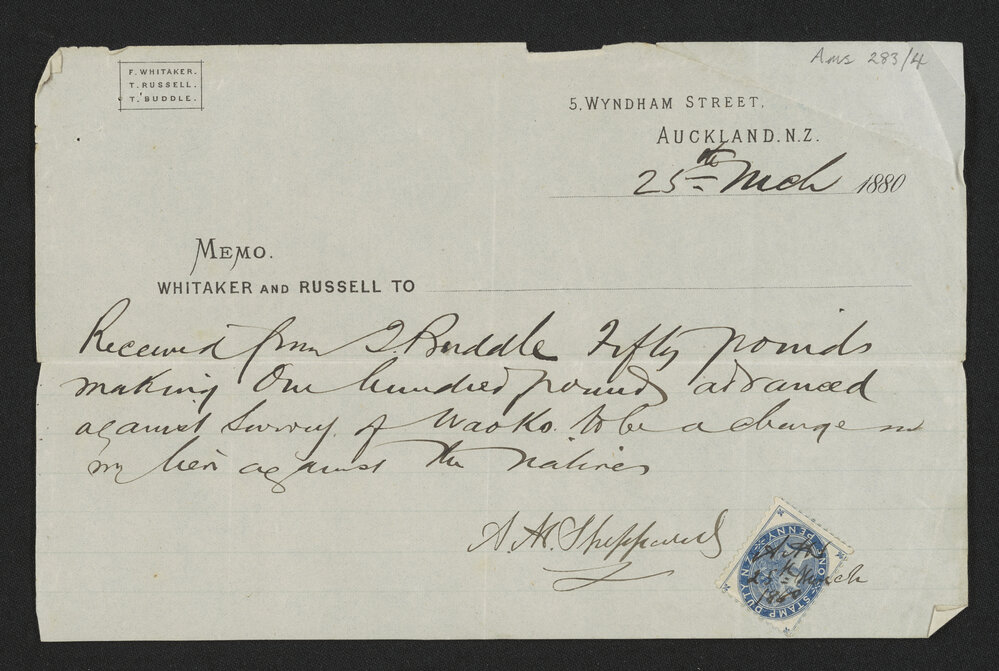 Ams 283/4
F. WHITAKER.
T. RUSSELL.
T. BUDDLE.
5, WYNDHAM STREET,
AUCKLAND. N.Z.
25th Mch 1880
MEMO.
WHITAKER AND RUSSELL TO
Received from T. Buddle Fifty pounds
making One hundred pounds advanced
against Survey of Waoko to be a charge on
my lien against the natives
A. H. Sheppard
STAMP DUTY N.Z. ONE PENNY
25th March
1880